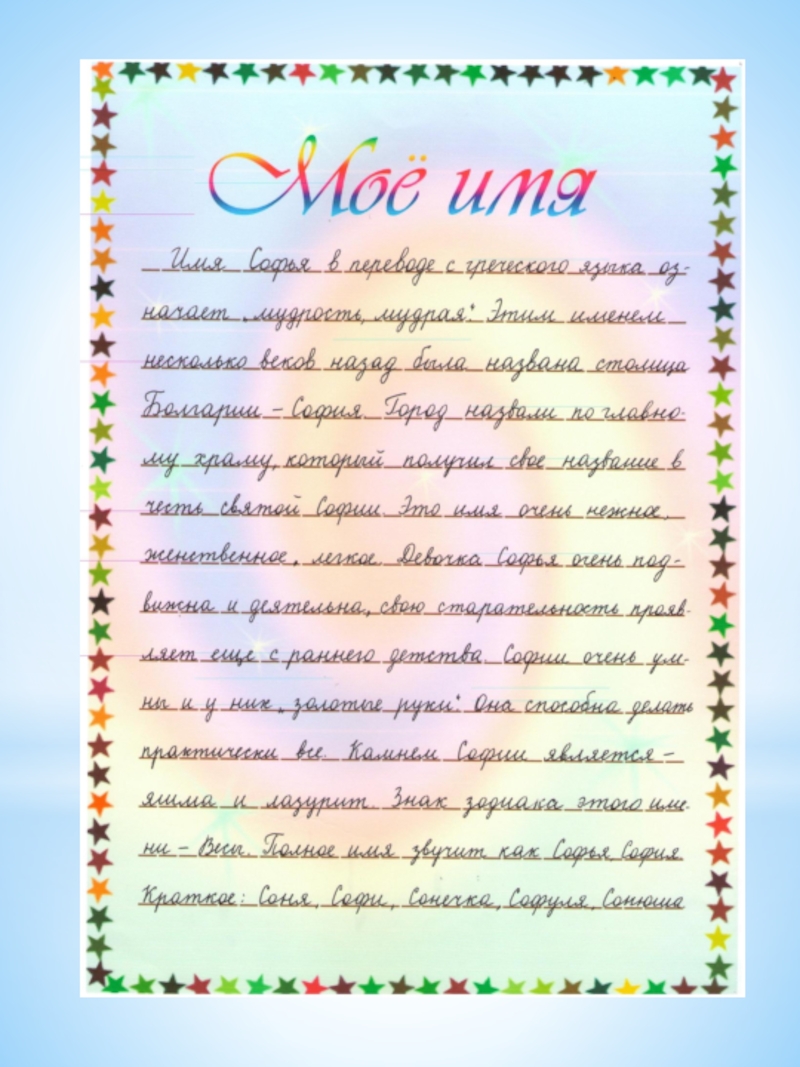 Моё имя
Имя Софья в переводе с греческого языка оз-
начает „мудрость, мудрая". Этим именем
несколько веков назад была названа столица
Болгарии – София. Город назвали по главно-
му храму, который получил свое название в
честь святой Софии. Это имя очень нежное,
женственное, легкое. Девочка Софья очень под-
вижна и деятельна, свою старательность прояв-
ляет еще с раннего детства. Софии очень ум-
ны и у них „золотые руки". Она способна делать
практически все. Камнем Софии является –
яшма и лазурит. Знак зодиака этого име-
ни – Весы. Полное имя звучит как Софья, София.
Краткое: Соня, Софи, Сонечка, Софуля, Сонюша